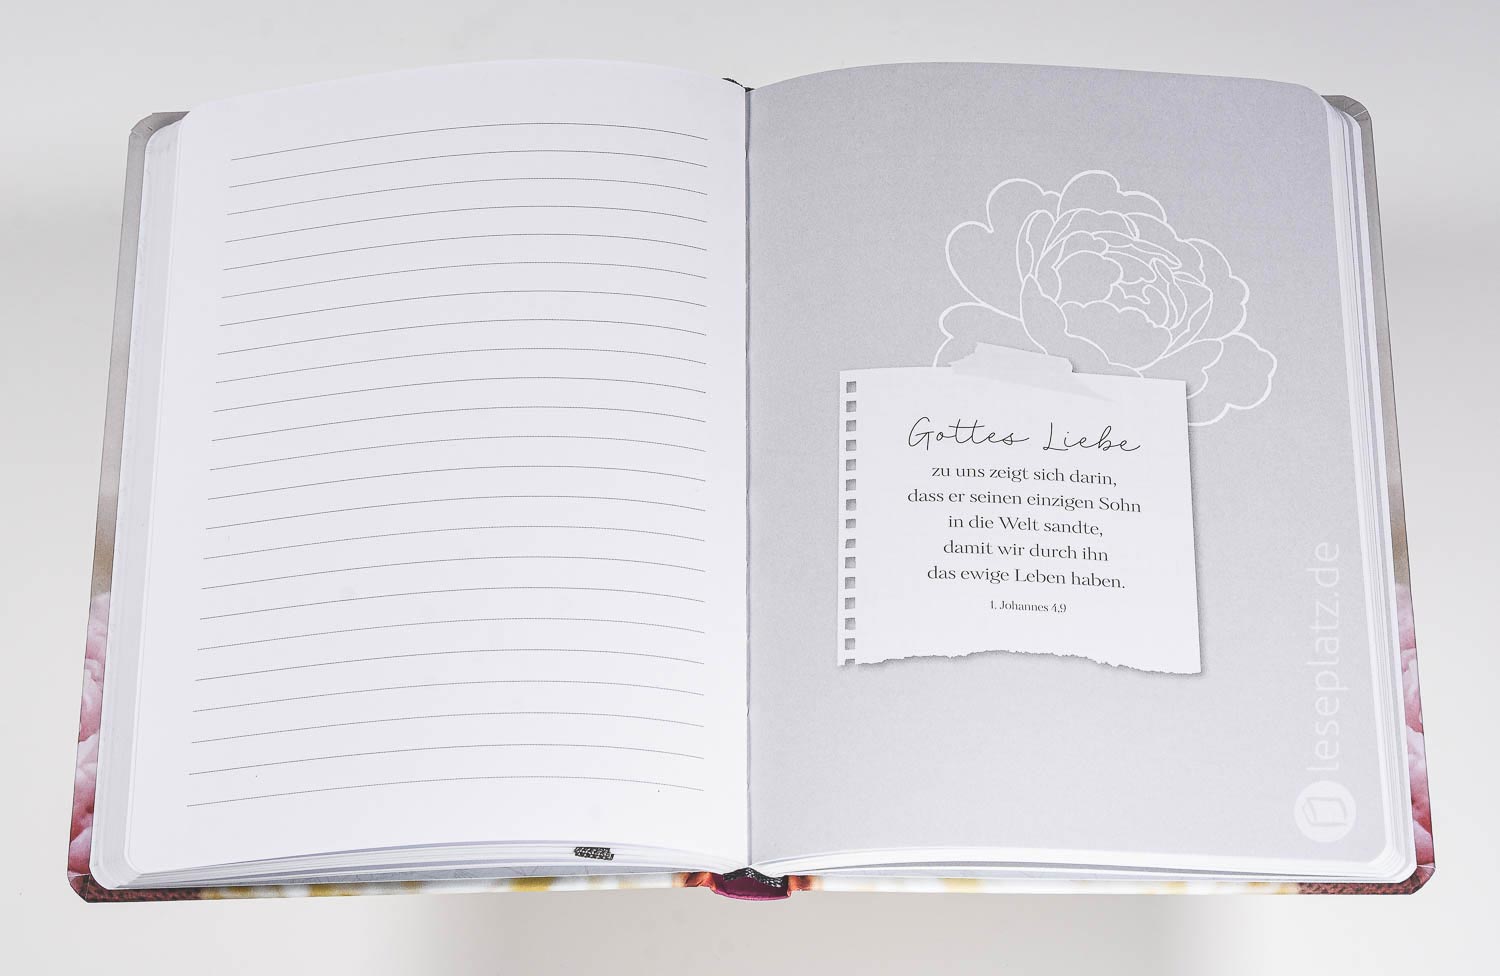 Gottes Liebe
zu uns zeigt sich darin,
dass er seinen einzigen Sohn
in die Welt sandte,
damit wir durch ihn
das ewige Leben haben.
1. Johannes 4,9
leseplatz.de